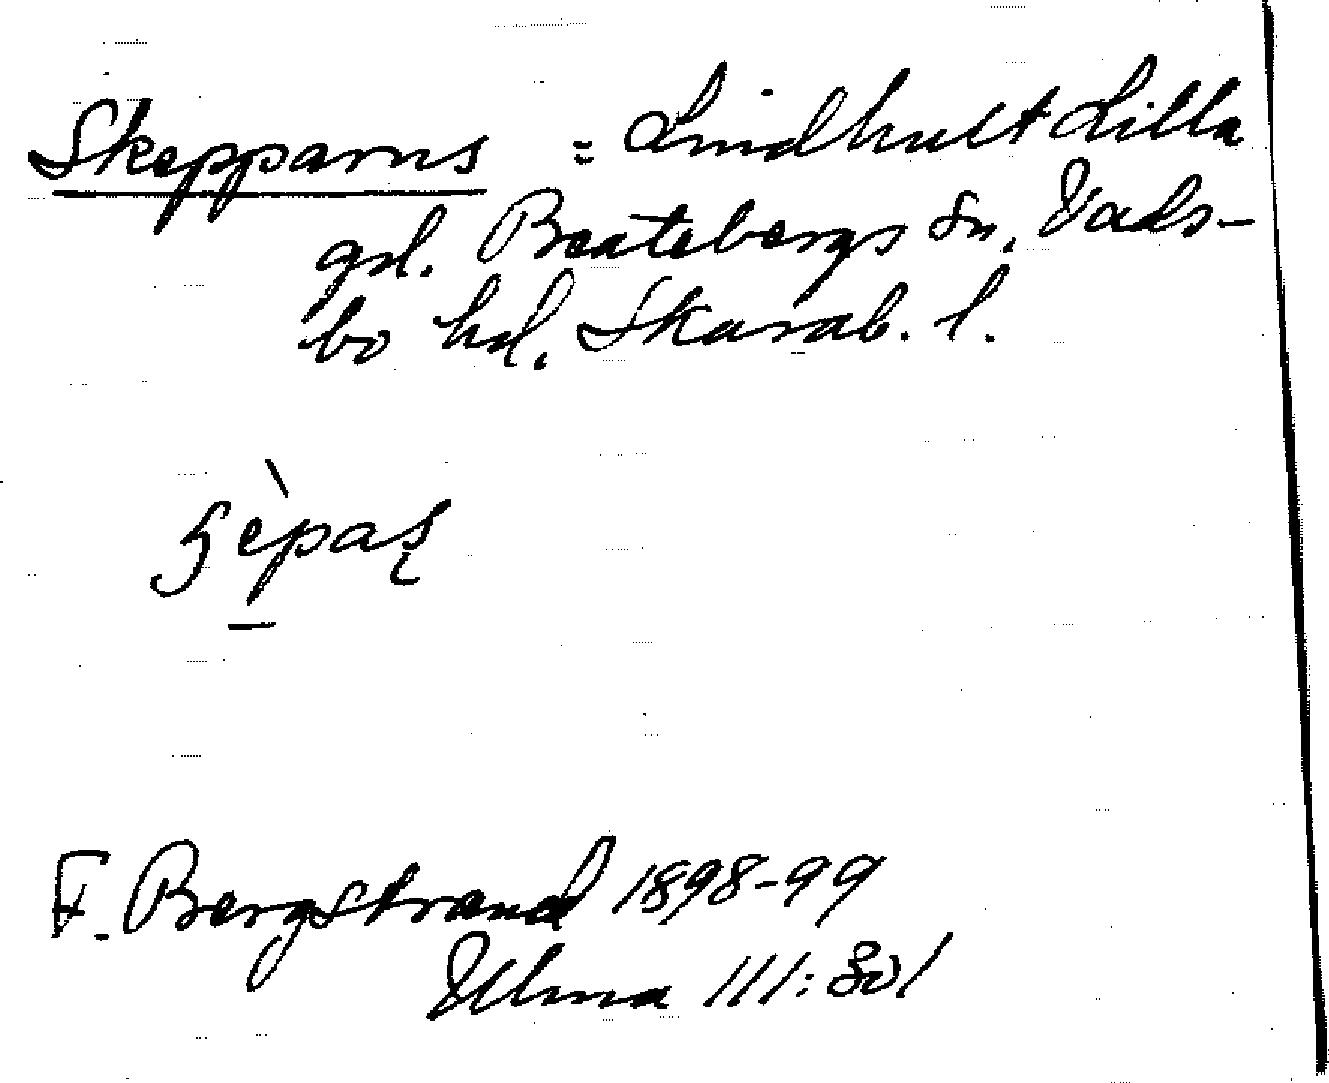 Skepparns = Lindhult Lilla
gd. Beatebergs sn, Vads-
bo hd. Skarab. l.
F. Bergstrand 1898-99
Ulma 111:801